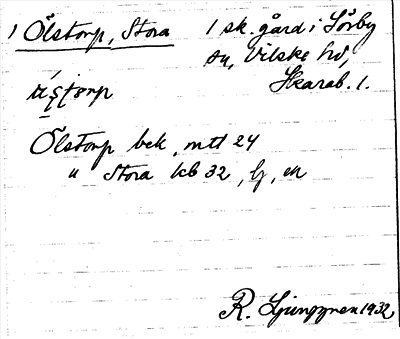 1 Ölstorp, Stora 1 sk. gård i Sörby
sn, Vilske hd,
Skarab. l.
Ölstorp bek, mtl 24
" Stora kb 32, lj, en
R. Ljunggren 1932